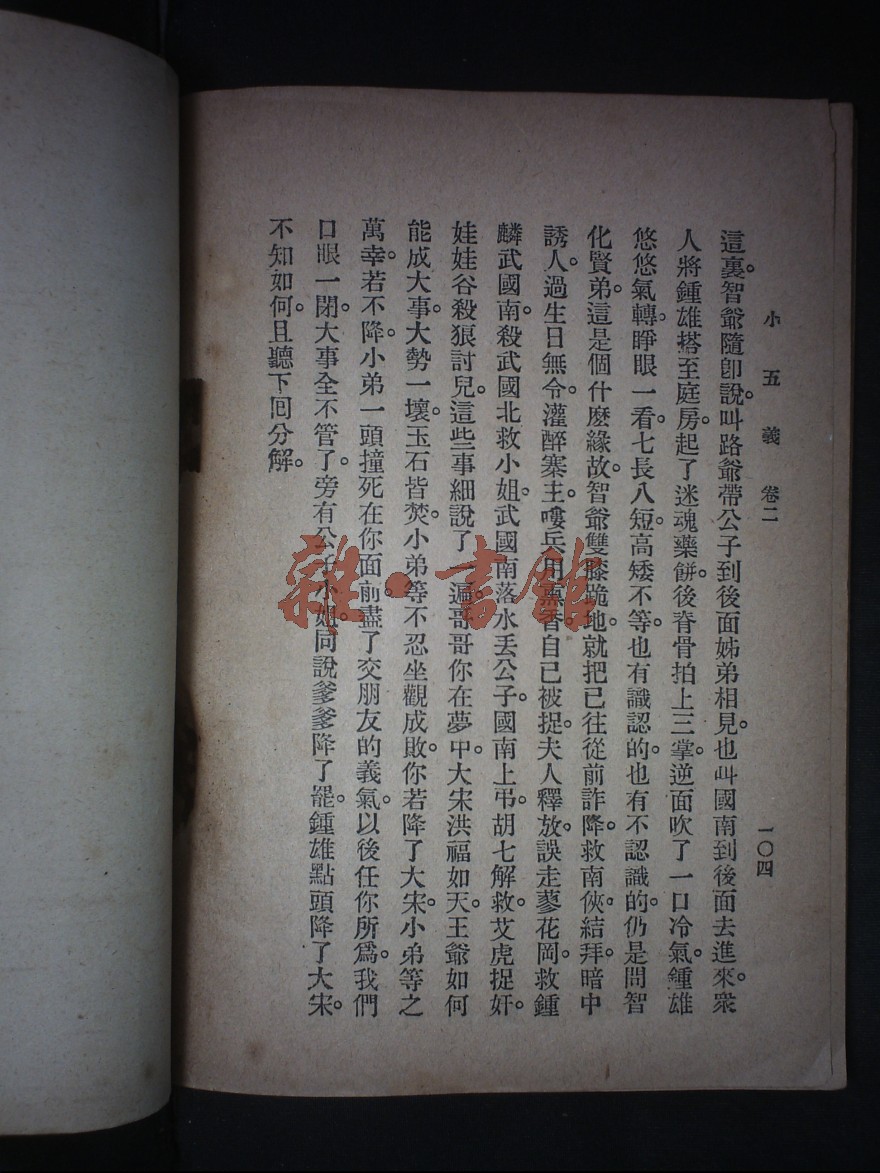 小五義 卷二 一〇四
這裏。智爺隨卽說。叫路爺帶公子到後面姊弟相見。也叫國南到後面去進來。衆
人將鍾雄搭至庭房。起了迷魂藥餅。後脊骨拍上三掌。逆面吹了一口冷氣。鍾雄
悠悠氣轉。睜眼一看。七長八短。高矮不等。也有識認的。也有不認識的。仍是問智
化賢弟。這是個什麽緣故。智爺雙膝跪地。就把已往從前詐降。救南俠。結拜。暗中
誘人。過生日無令。灌醉寨主。嘍兵用薰香。自己被捉。夫人釋放。誤走蓼花岡。救鍾
麟武國南。殺武國北救小姐。武國南落水丟公子。國南上弔。胡七解救艾虎捉奸。
娃娃谷殺狼討兒。這些事細說了一遍。哥哥你在夢中。大宋洪福如天。王爺如何
能成大事。大勢一壞。玉石皆焚。小弟等不忍坐觀成敗。你若降了大宋。小弟等之
萬幸。若不降。小弟一頭撞死在你面前。盡了交朋友的義氣。以後任你所爲。我們
口眼一閉。大事全不管了。旁有公子小姐。同說爹爹降了罷。鍾雄點頭降了大宋。
不知如何。且聽下囘分解。
雜·書館